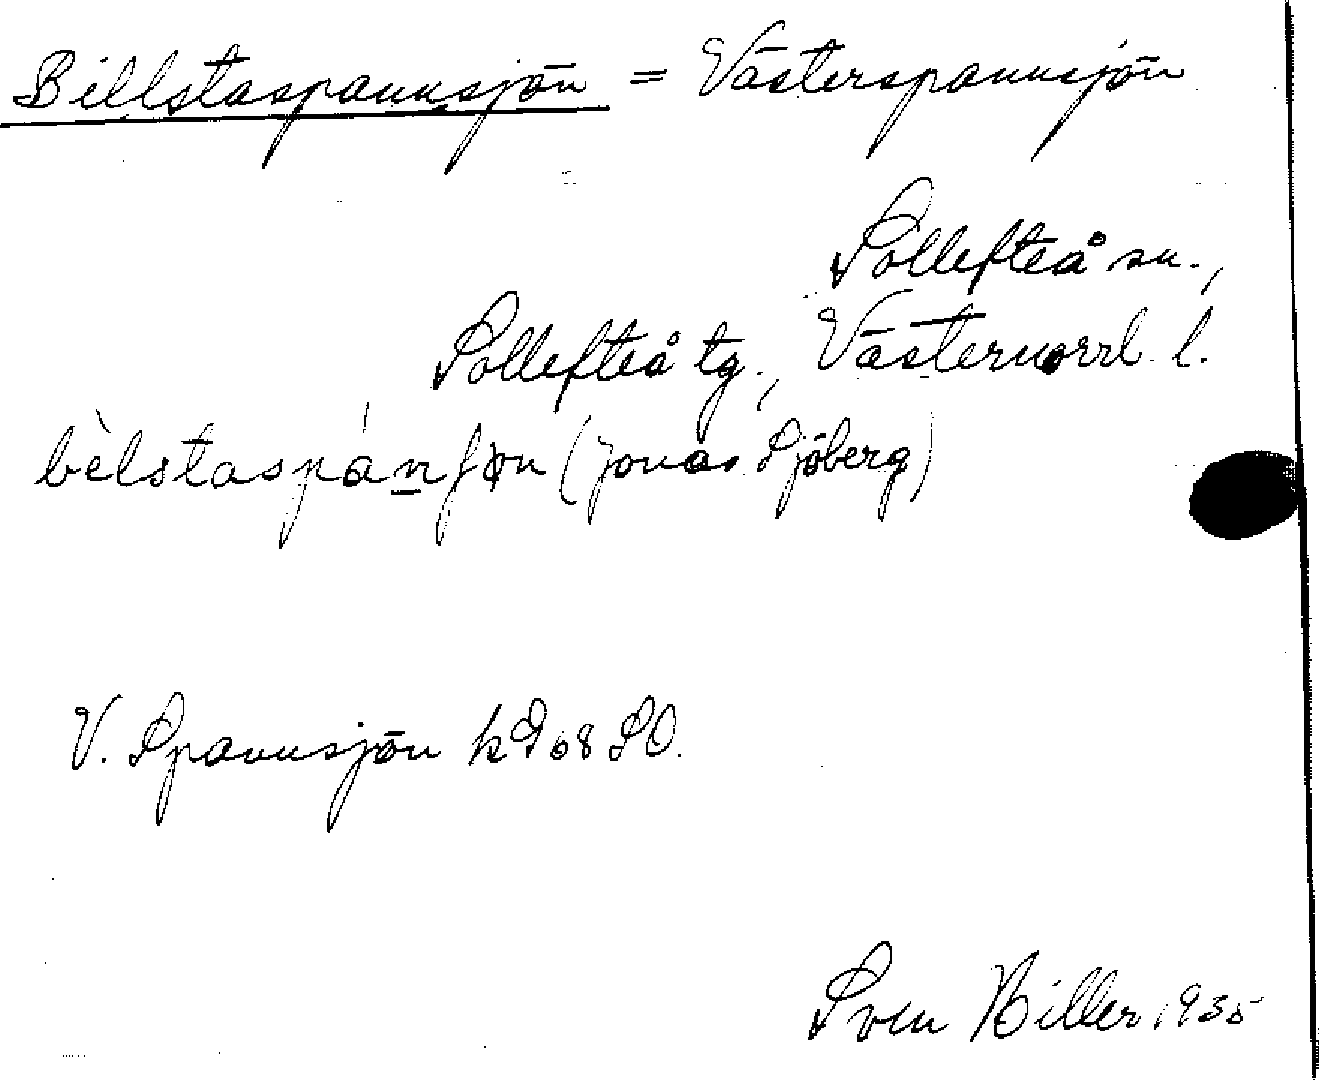 Billstaspannsjön = Västerspannsjön
Sollefteå sn.,
Sollefteå tg., Västernorrl. l.
bèlstaspán̲ʃøn (Jonas Sjöberg)
V. Spannsjön k268 SO.
Sven Biller 1935